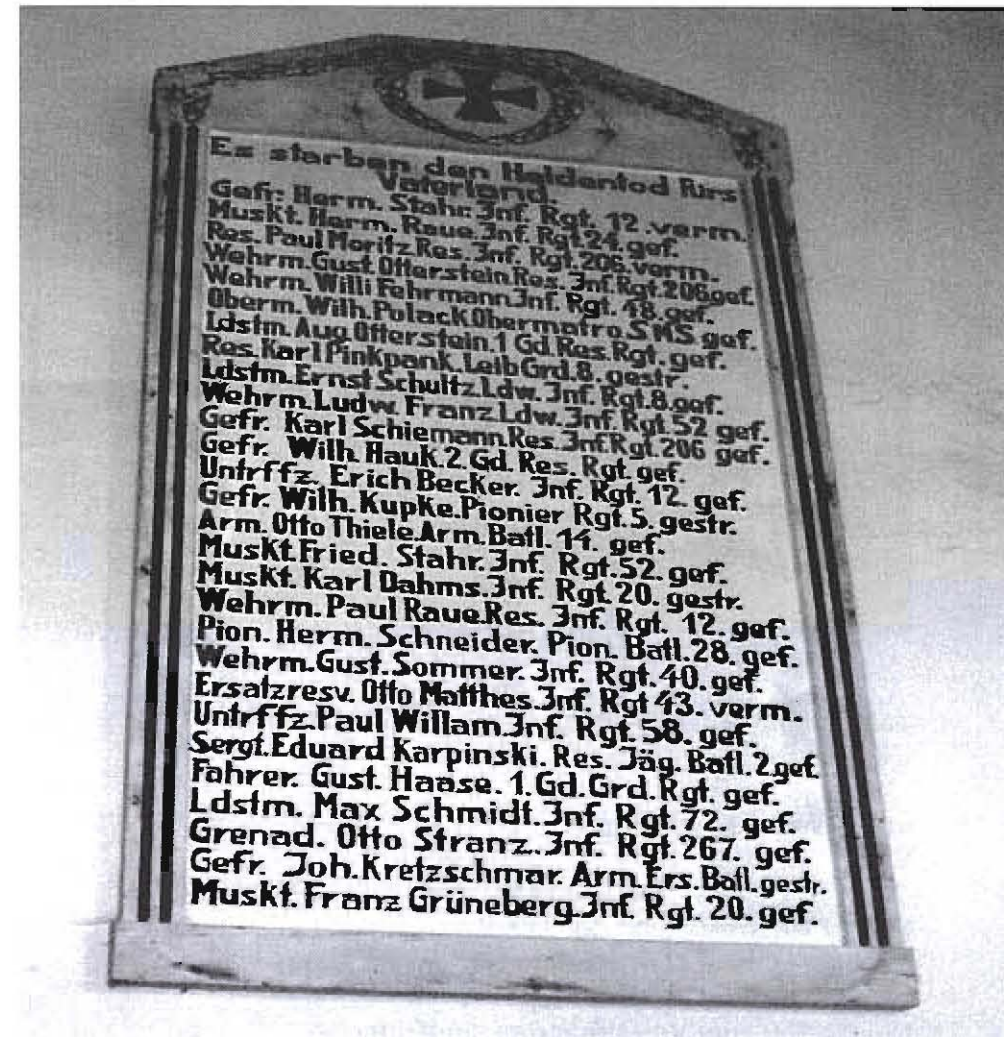 Es starben den Heldentod fürs
Vaterland.
Gefr. Herm. Stahr. Inf. Rgt. 12. verm.
Muskt. Herm. Raue. Inf. Rgt. 24. gef.
Res. Paul Moritz. Res. Inf. Rgt. 206. verm.
Wehrm. Gust. Otterstein Res. Inf. Rgt. 206. gef.
Wehrm. Willi Fehrmann. Inf. Rgt. 48. gef.
Oberm. Wilh. Polack Obermatro. SMS. gef.
Ldstm. Aug. Otterstein. 1 Gd. Res. Rgt. gef.
Res. Karl Pinkpank. Leib Grd. 8. gestr.
Ldstm. Ernst Schultz. Ldw. Inf. Rgt. 8. gef.
Wehrm. Ludw. Franz Ldw. Inf. Rgt. 52 gef.
Gefr. Karl Schiemann Res. Inf. Rgt. 206 gef.
Gefr. Wilh. Hauk. 2. Gd. Res. Rgt. gef.
Untrffz. Erich Becker. Inf. Rgt. 12. gef.
Gefr. Wilh. Kupke. Pionier Rgt. 5. gestr.
Arm. Otto Thiele. Arm. Batl. 14. gef.
Muskt. Fried. Stahr. Inf. Rgt. 52. gef.
Muskt. Karl Dahms. Inf. Rgt. 20. gestr.
Wehrm. Paul Raue. Res. Inf. Rgt. 12. gef.
Pion. Herm. Schneider. Pion. Batl. 28. gef.
Wehrm. Gust. Sommer. Inf. Rgt. 40. gef.
Ersatzresv. Otto Matthes. Inf. Rgt 43. verm.
Untrffz. Paul Willam. Inf. Rgt. 58. gef.
Sergt. Eduard Karpinski. Res. Jäg. Batl. 2. gef.
Fahrer. Gust. Haase. 1. Gd. Grd. Rgt. gef.
Ldstm. Max Schmidt. Inf. Rgt. 72. gef.
Grenad. Otto Stranz. Inf. Rgt. 267. gef.
Gefr. Joh. Kretzschmar. Arm. Ers. Batl. gestr.
Muskt. Franz Grüneberg. Inf. Rgt. 20. gef.